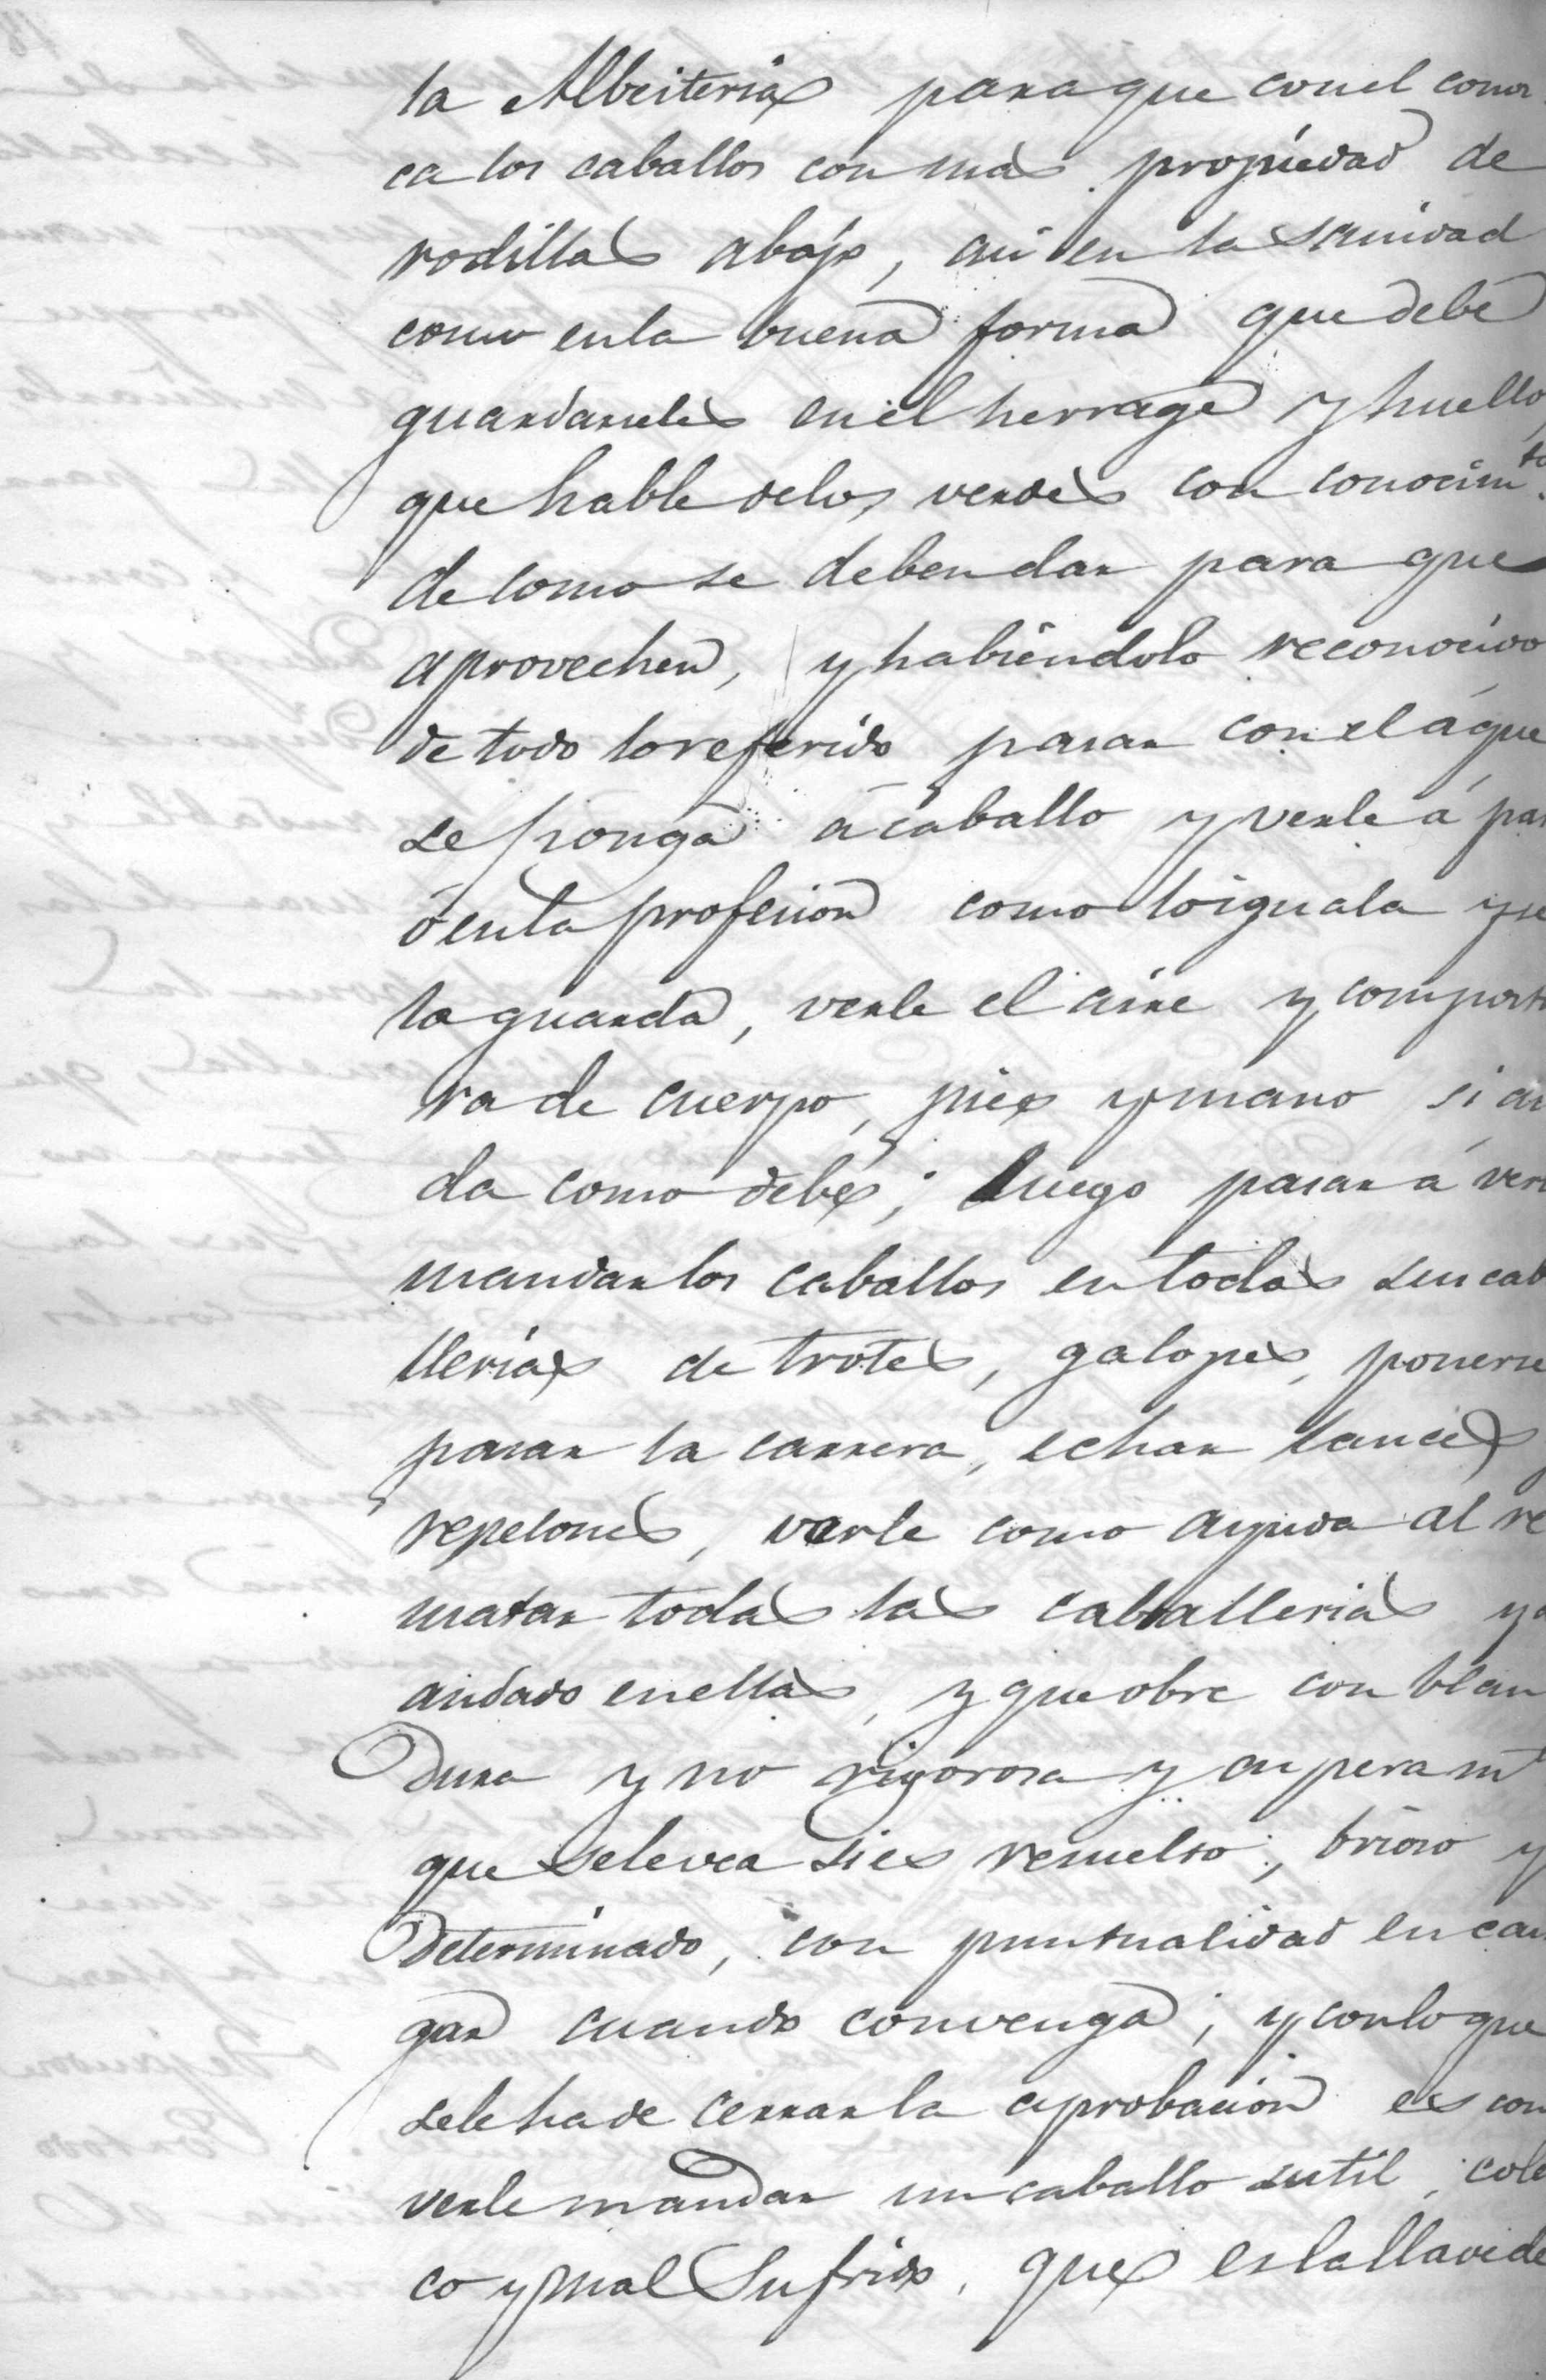 la Albeiteria para que con el conos
ca los caballos con más propiedad de
rodillas abajo, asi en la sanidad
como en la buena forma que debe
guardarseles en el herrage y huello,
que hable delos verdes con conocim.to
de como se deben dar para que
aprovechen, y habiéndolo reconocido
de todo lo referido pasar con el á que
se ponga á caballo y verle á pa
ó en la profesion como lo iguala y se
la guarda, verle el aire y compost
ra de cuerpo, pies y mano si an
da como debe; luego pasar á ver
mandar los caballos en todas sus cab
llerías de trotes, galopes, ponerse
parar la carrera, echar lances
repelones, verle como ayuda al re
matar todas las caballerias y
andado en ellas, y que obre con blan
dura y no rigorosa y asperam
que se le vea si es resuelto, brioso y
determinado, con puntualidad en cas
gar cuando convenga; y con lo que
se le ha de cerrar la aprobacion es con
verle mandar un caballo sutil, cole
co y mal sufrido, que es la llave de